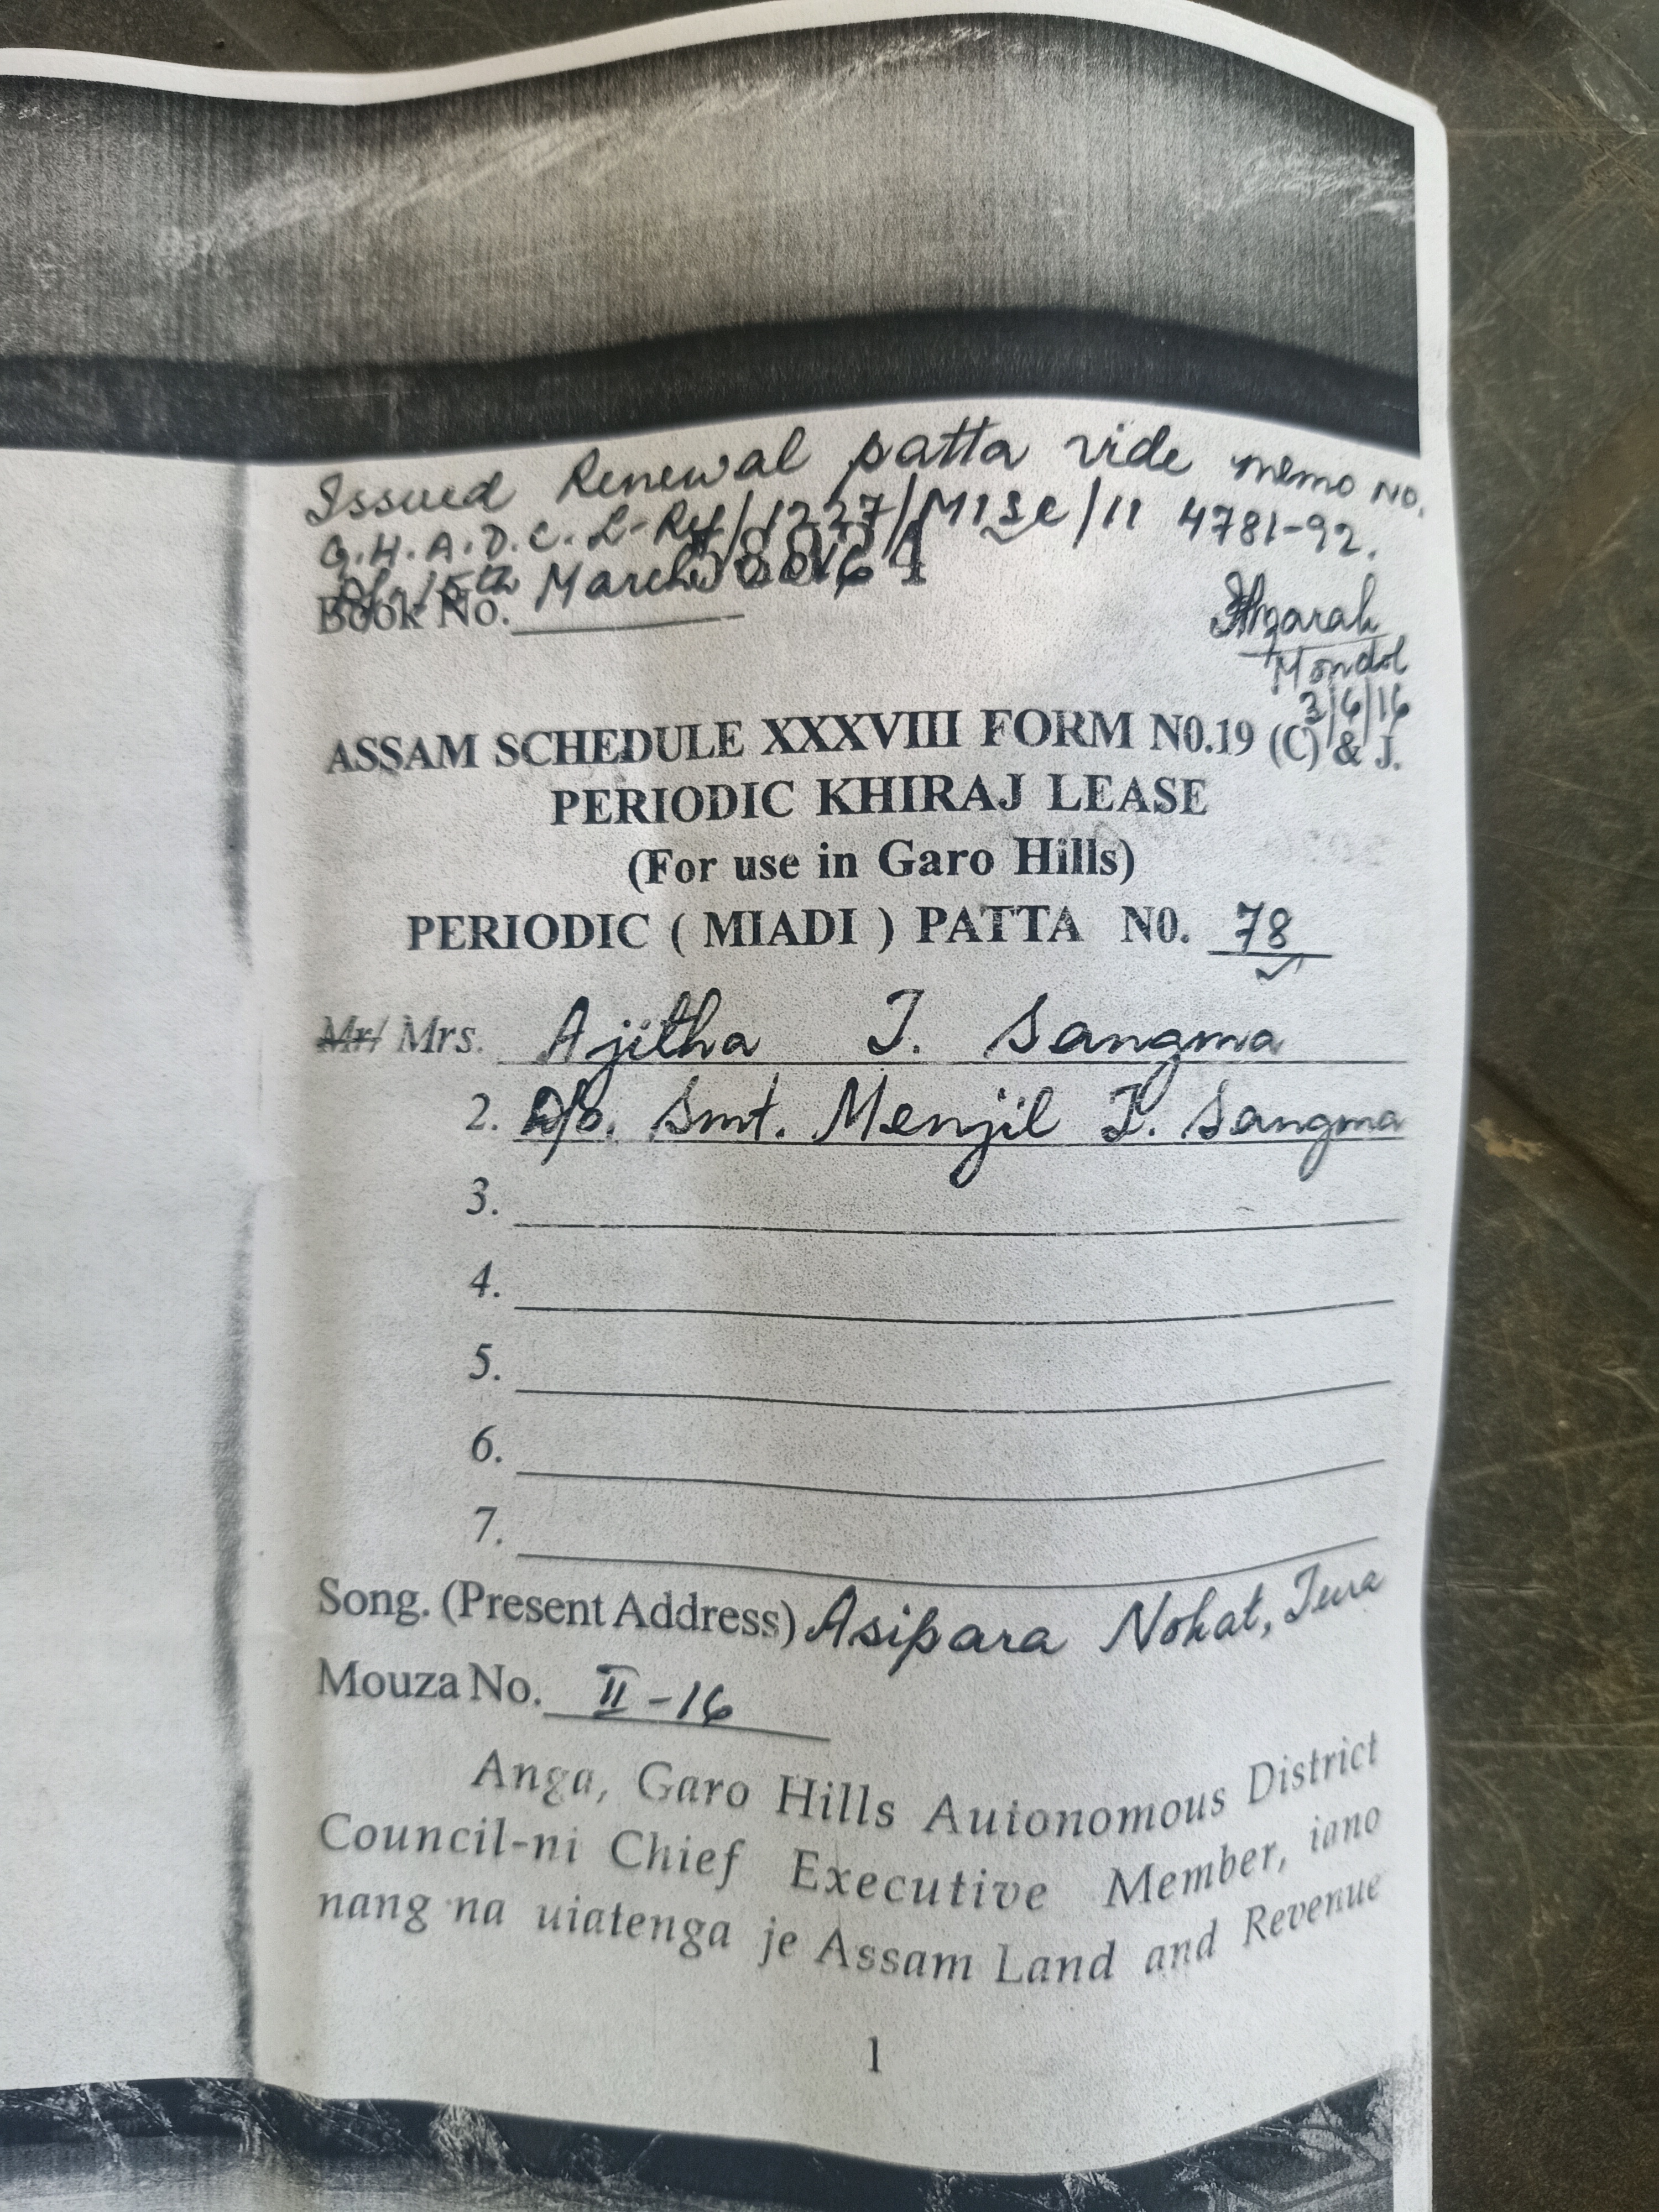 Issued Renewal patta vide memo No.
G.H.A.D.C. L-Rv/1227/Misc/11 4781-92.
Dt. 15th March
Book No.
Mondol
3/6/16
ASSAM SCHEDULE XXXVIII FORM N0.19 (C) & J.
PERIODIC KHIRAJ LEASE
(For use in Garo Hills)
PERIODIC ( MIADI ) PATTA N0. 78
Mr/ Mrs. Ajitha T. Sangma
2. D/o. Smt. Menjil T. Sangma
3.
4.
5.
6.
7.
Song. (Present Address) Asipara Nokat, Tura
Mouza No. II-16
Anga, Garo Hills Autonomous District
Council-ni Chief Executive Member, iano
nang'na uiatenga je Assam Land and Revenue
1